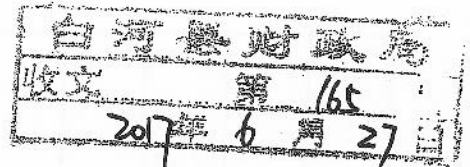 白河县财政局
收文 第 165
2017年 6 月 27 日